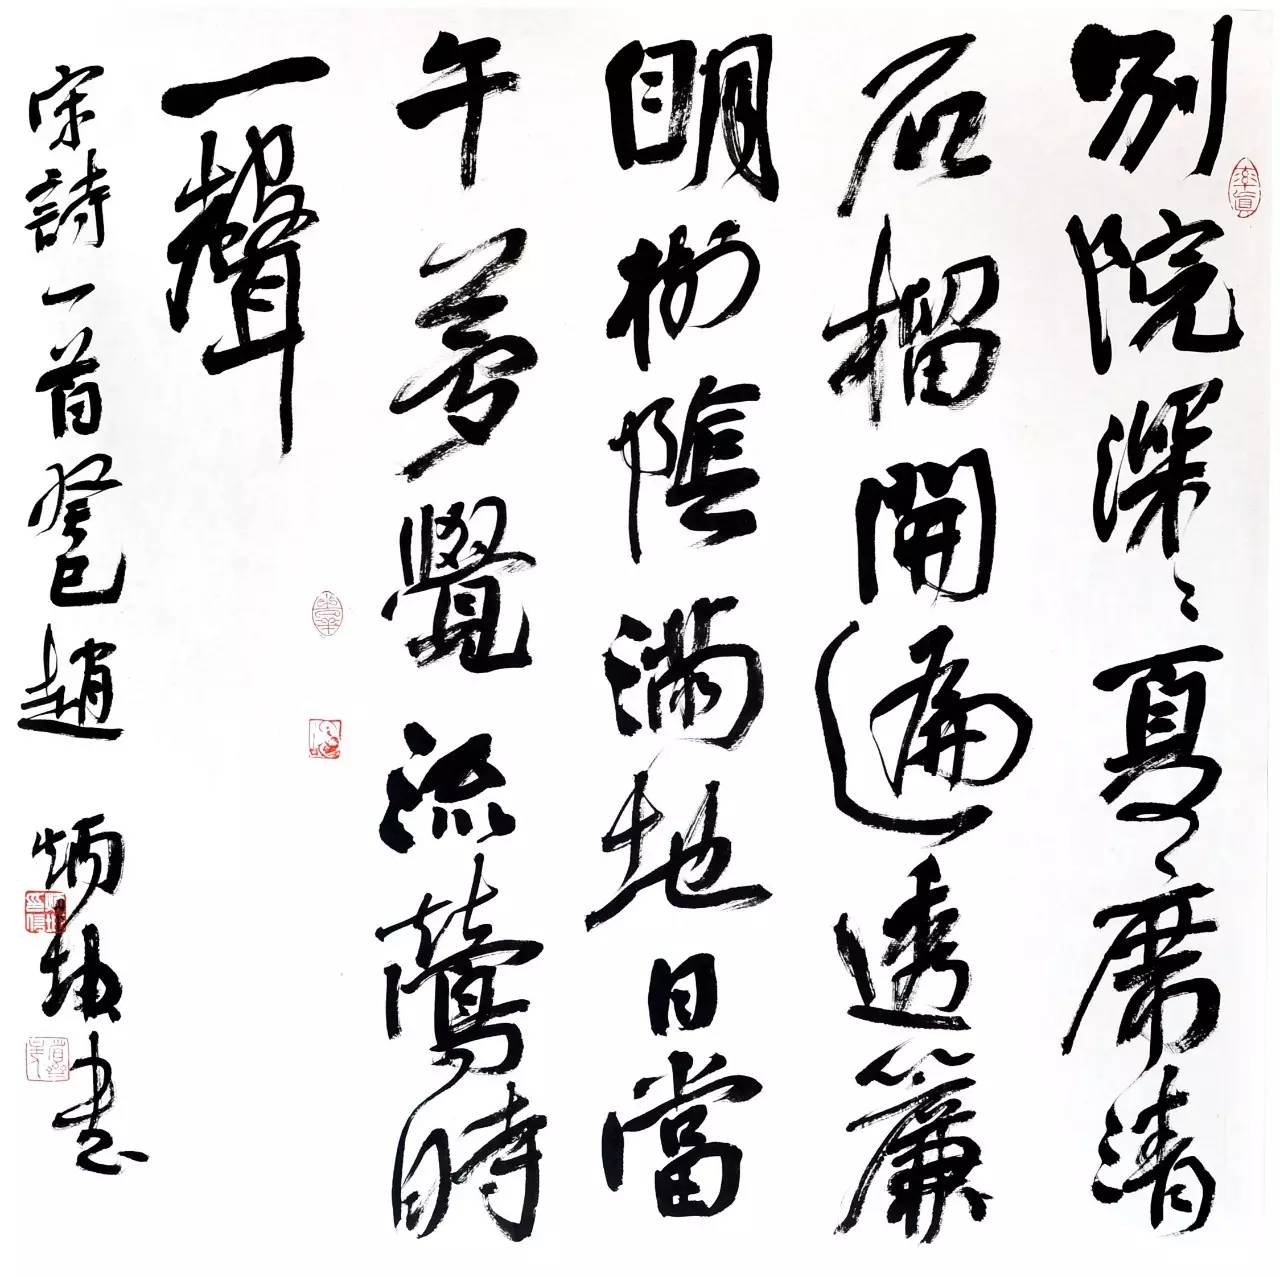 別院深〻夏席清
石榴開遍透簾
明樹陰滿地日當
午夢覺流鶯時
一聲
宋詩一首癸巳趙
炳坤書